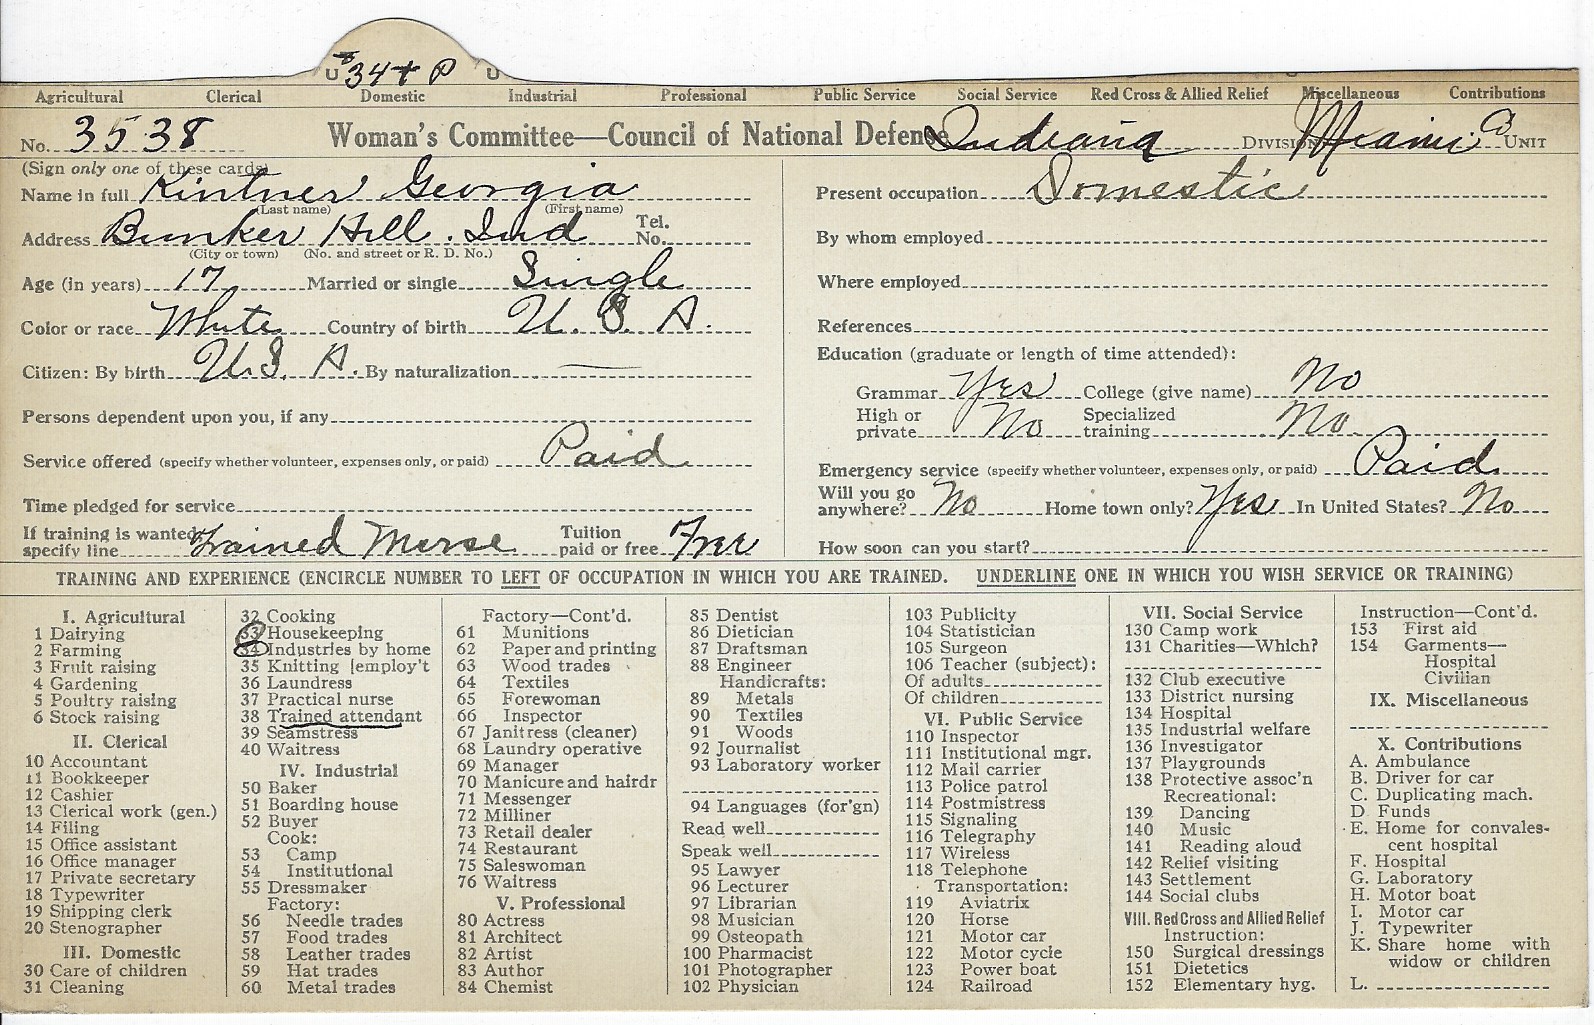 34+ P
Agricultural Clerical Domestic Industrial Professional Public Service Social Service Red Cross & Allied Relief Miscellaneous Contributions
No. 3538 Woman's Committee—Council of National Defense Indiana DIVISION Miami UNIT
(Sign only one of these cards)
Name in full Kintner Georgia
(Last name) (First name)
Address Bunker Hill. Ind Tel. No.
(City or town) (No. and street or R. D. No.)
Age (in years) 17 Married or single Single
Color or race White Country of birth U. S. A.
Citizen: By birth U.S. A. By naturalization —
Persons dependent upon you, if any
Service offered (specify whether volunteer, expenses only, or paid) Paid
Time pledged for service
If training is wanted specify line Trained Nurse Tuition paid or free Free
Present occupation Domestic
By whom employed
Where employed
References
Education (graduate or length of time attended):
Grammar Yes College (give name) No
High or private No Specialized training No
Emergency service (specify whether volunteer, expenses only, or paid) Paid
Will you go anywhere? No Home town only? Yes In United States? No
How soon can you start?
TRAINING AND EXPERIENCE (ENCIRCLE NUMBER TO LEFT OF OCCUPATION IN WHICH YOU ARE TRAINED. UNDERLINE ONE IN WHICH YOU WISH SERVICE OR TRAINING)
I. Agricultural
1 Dairying
2 Farming
3 Fruit raising
4 Gardening
5 Poultry raising
6 Stock raising
II. Clerical
10 Accountant
11 Bookkeeper
12 Cashier
13 Clerical work (gen.)
14 Filing
15 Office assistant
16 Office manager
17 Private secretary
18 Typewriter
19 Shipping clerk
20 Stenographer
III. Domestic
30 Care of children
31 Cleaning
32 Cooking
33 Housekeeping
34 Industries by home
35 Knitting [employ't
36 Laundress
37 Practical nurse
38 Trained attendant
39 Seamstress
40 Waitress
IV. Industrial
50 Baker
51 Boarding house
52 Buyer
Cook:
53 Camp
54 Institutional
55 Dressmaker
Factory:
56 Needle trades
57 Food trades
58 Leather trades
59 Hat trades
60 Metal trades
Factory—Cont'd.
61 Munitions
62 Paper and printing
63 Wood trades
64 Textiles
65 Forewoman
66 Inspector
67 Janitress (cleaner)
68 Laundry operative
69 Manager
70 Manicure and hairdr
71 Messenger
72 Milliner
73 Retail dealer
74 Restaurant
75 Saleswoman
76 Waitress
V. Professional
80 Actress
81 Architect
82 Artist
83 Author
84 Chemist
85 Dentist
86 Dietician
87 Draftsman
88 Engineer
Handicrafts:
89 Metals
90 Textiles
91 Woods
92 Journalist
93 Laboratory worker
94 Languages (for'gn)
Read well
Speak well
95 Lawyer
96 Lecturer
97 Librarian
98 Musician
99 Osteopath
100 Pharmacist
101 Photographer
102 Physician
103 Publicity
104 Statistician
105 Surgeon
106 Teacher (subject):
Of adults
Of children
VI. Public Service
110 Inspector
111 Institutional mgr.
112 Mail carrier
113 Police patrol
114 Postmistress
115 Signaling
116 Telegraphy
117 Wireless
118 Telephone
Transportation:
119 Aviatrix
120 Horse
121 Motor car
122 Motor cycle
123 Power boat
124 Railroad
VII. Social Service
130 Camp work
131 Charities—Which?
132 Club executive
133 District nursing
134 Hospital
135 Industrial welfare
136 Investigator
137 Playgrounds
138 Protective assoc'n
Recreational:
139 Dancing
140 Music
141 Reading aloud
142 Relief visiting
143 Settlement
144 Social clubs
VIII. Red Cross and Allied Relief
Instruction:
150 Surgical dressings
151 Dietetics
152 Elementary hyg.
Instruction—Cont'd.
153 First aid
154 Garments—
Hospital
Civilian
IX. Miscellaneous
X. Contributions
A. Ambulance
B. Driver for car
C. Duplicating mach.
D Funds
E. Home for convales-
cent hospital
F. Hospital
G. Laboratory
H. Motor boat
I. Motor car
J. Typewriter
K. Share home with
widow or children
L.